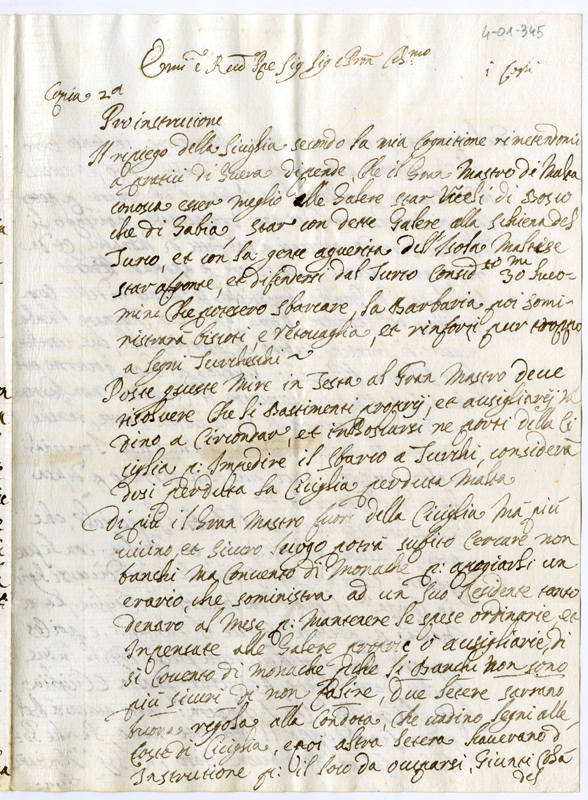 4-01-345
Copia 2a
Pro instrucione
Il ripiego della Siciglia secondo la mia Cognitione rimetendomi
di Guera dipende, che il Gran Mastro di Malta
conosca esser meglio alle Galere star Uceli di Bosco
che di Gabia, star con dette Galere alla schiena del
Turco, et con la gente aguerita dell'Isola Maltese
star a fronte, et difendersi dal Turco 30 huo-
mini che potevero sbarcare, la Barbaria poi somi-
nistrara biscoti e Vetovaglia, et rinforzi pur troppo
a legni Turcheschi
Poste queste Mire in Testa al Gran Mastro deve
risolvere che li Bastimenti proprij, et ausigliarij
dino a Circondar, et inboscarsi ne porti della Ci-
ciglia p: Impedire il sbarco a Turchi, considera
dosi perduta la Ciciglia perduta Malta
Di più il Gran Mastro fuori della Ciciglia Mà più
vicino, et sicuro luogo potrà subito cercare non
banchi ma Convento di Monache p: apogiarli un
erario, che soministra ad un suo Residente tanto
denaro al Mese p: Mantenere le spese ordinarie, et
Inpensate alle Galere proprie ò ausigliarie, di
si Covento di Monache perche li Banchi non sono
più sicuri di non falire, due letere sarrano
buona regola alla Condota, che vadino legni alle
coste di Ciciglia, e poi altra letera
Instrutione p: il loco da ocuparsi, Giunti
del